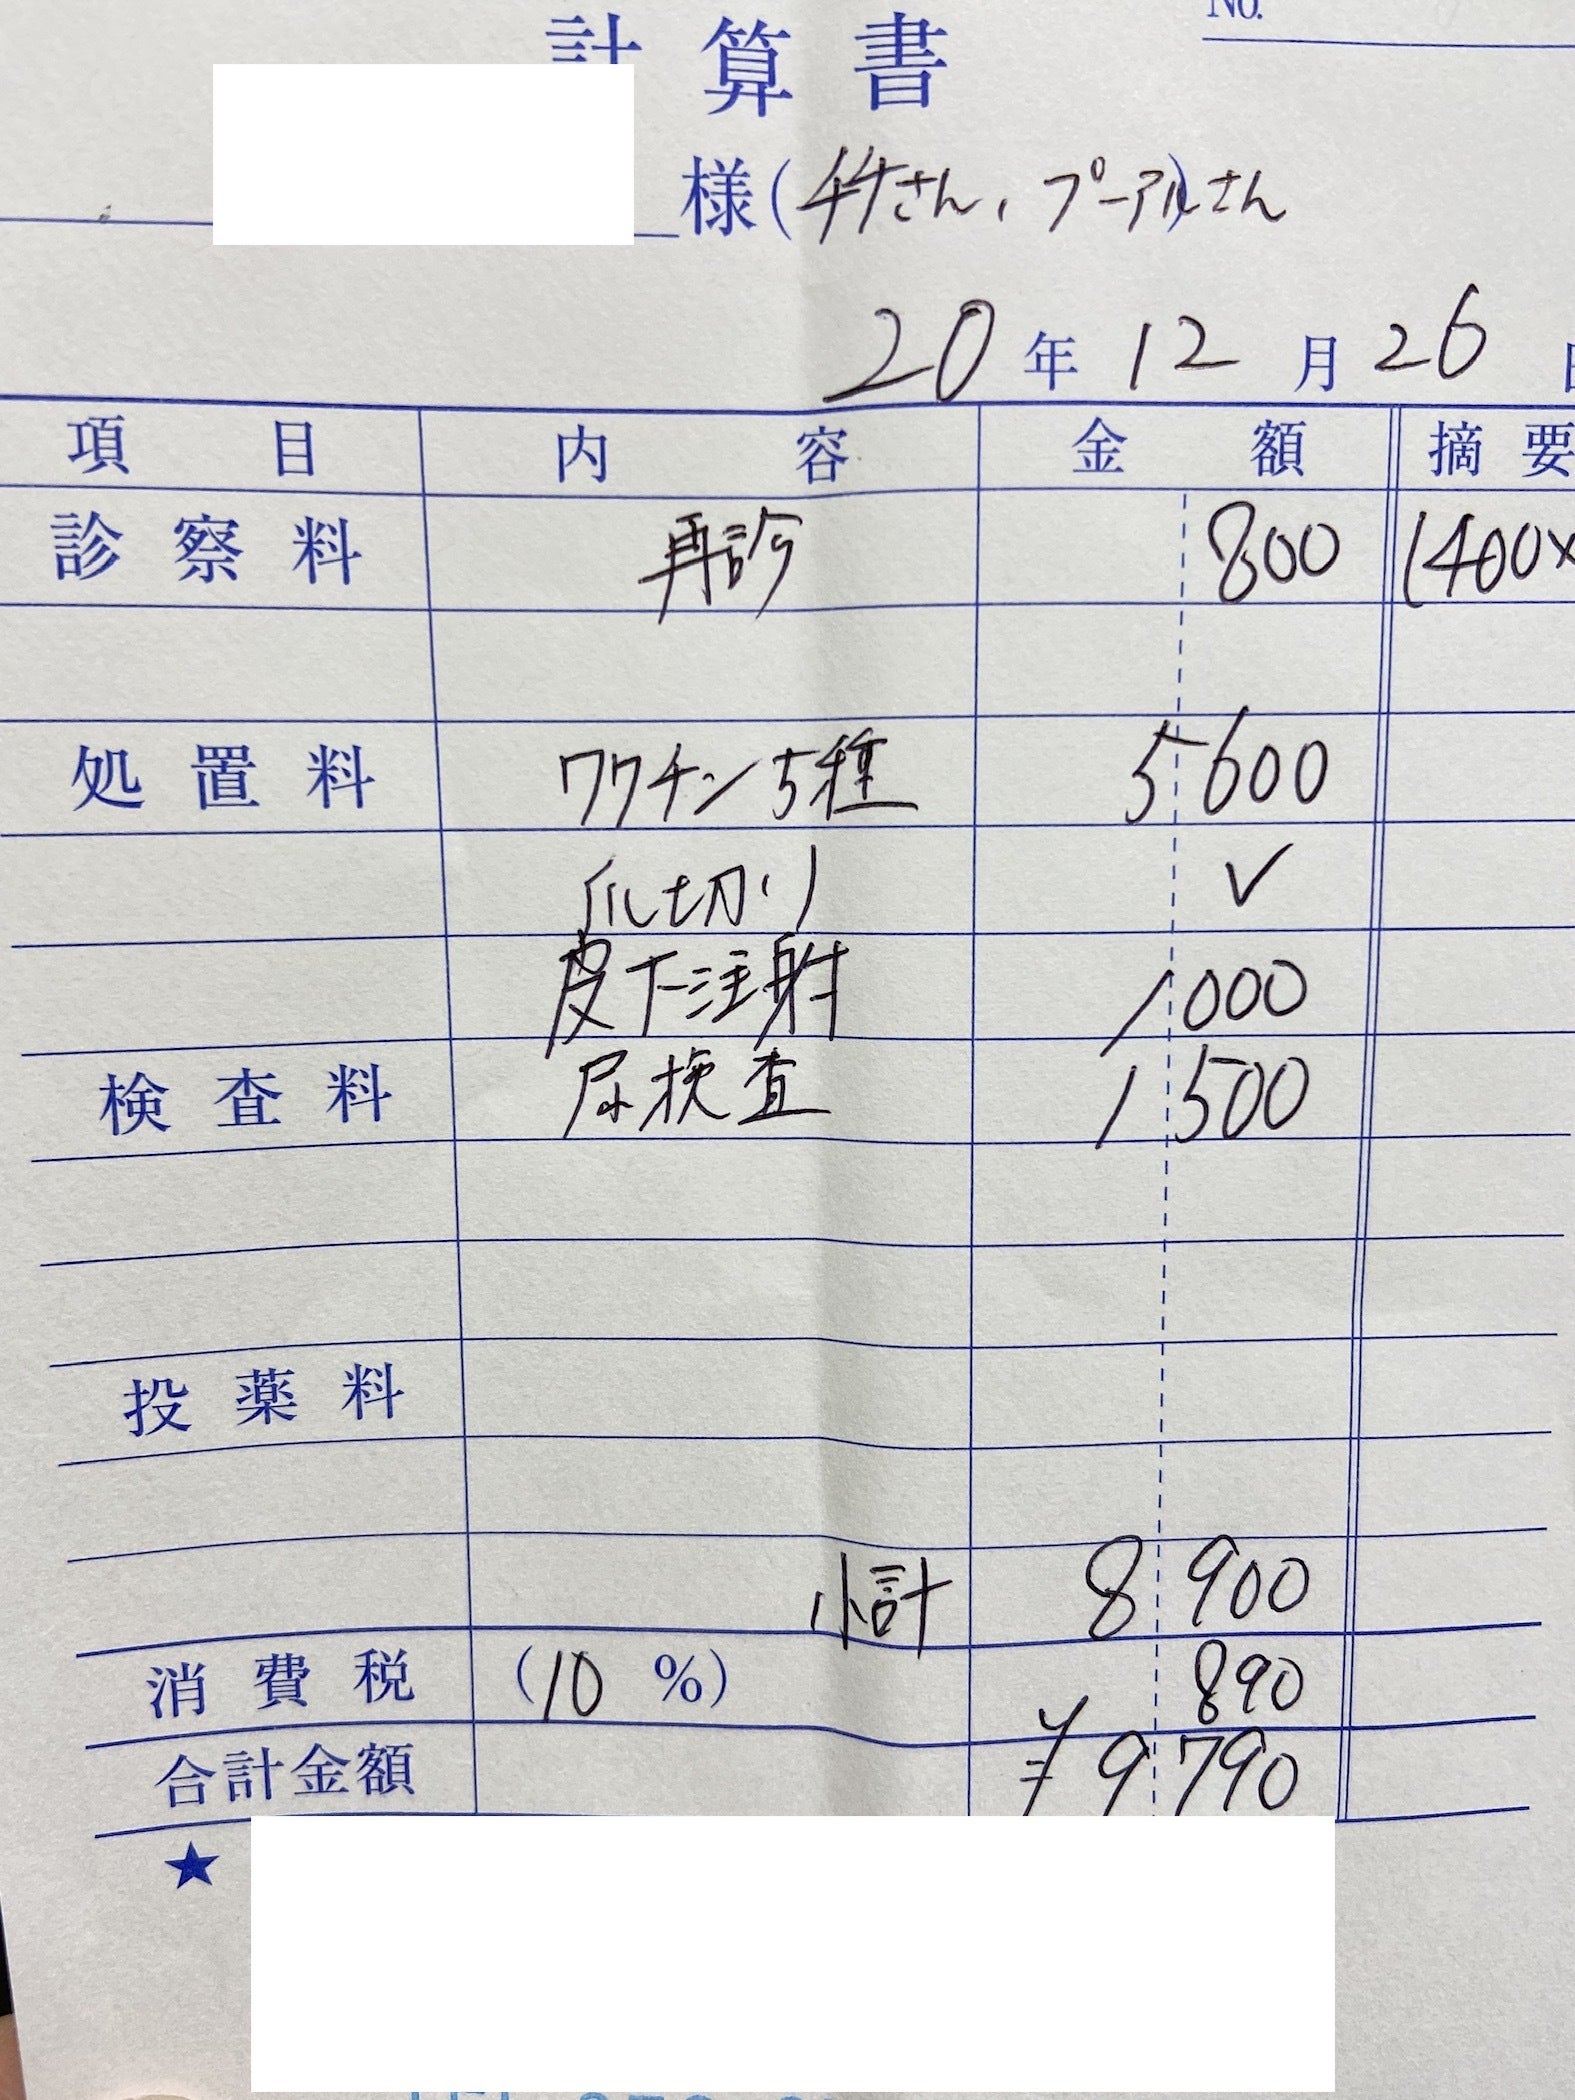 計算書
No.
様(チャさん、プーアルさん
20年12月26日
項目 内容 金額 摘要
診察料 再診 800 (400×
処置料 ワクチン5種 5600
爪切り ✓
皮下注射 1000
検査料 尿検査 1500
投薬料
小計 8900
消費税 (10%) 890
合計金額 ¥9790
★